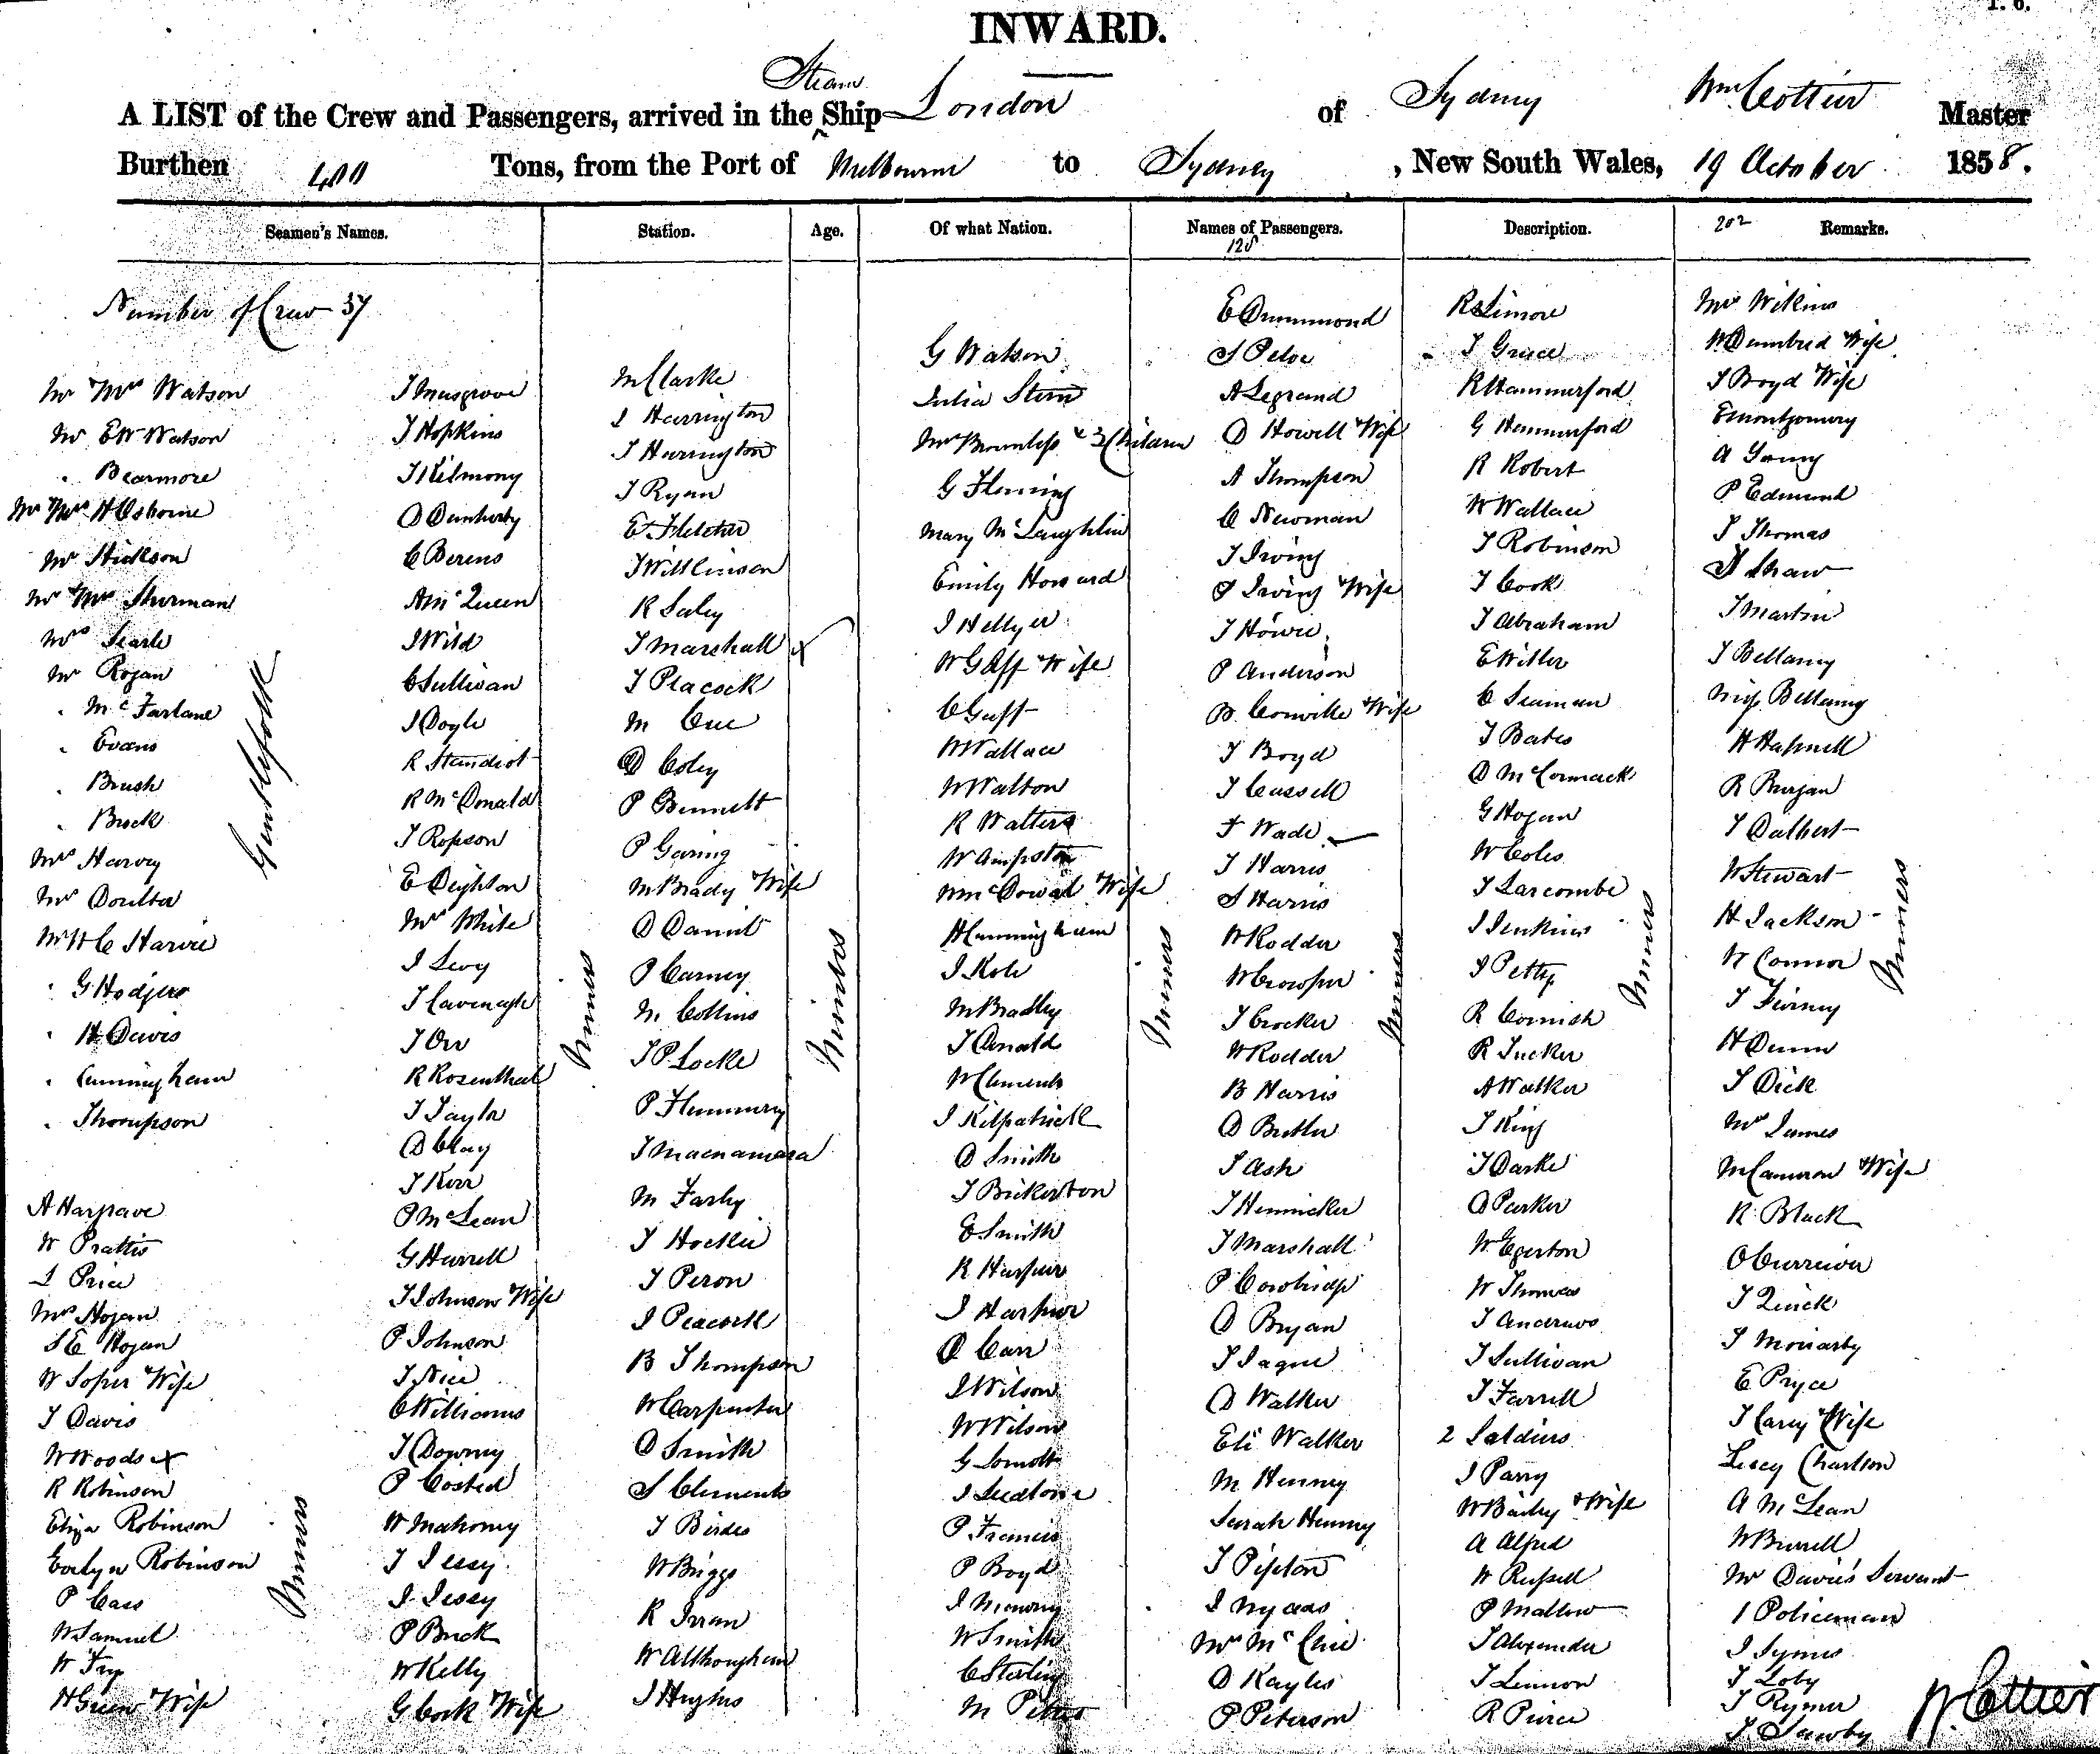 INWARD.
A LIST of the Crew and Passengers, arrived in the Steam Ship London of Sydney Wm Cottier Master
Burthen 400 Tons, from the Port of Melbourne to Sydney, New South Wales, 19 October 1858.
Seamen's Names. Station. Age. Of what Nation. Names of Passengers. Description. 202 Remarks.
128
Number of Crew 37
Mr & Mrs Watson
Mr E W Watson
" Bearmore
Mr & Mrs H Osborne
Mr Hickson
Mr & Mrs Sherman
Mrs Searle
Mr Rogan
" McFarlane
" Evans
" Brush
" Brock
Mrs Harvey
Mr Doulton
Mr H C Harvie
" G Hodges
" H Davis
" Cunningham
" Thompson
Gentlefolk
A Hargrave
W Prattis
J Price
Mrs Hogan
S E Hogan
W Soper & Wife
J Davis
W Woods x
R Robinson
Eliza Robinson
Evelyn Robinson
P Cass
W Samuel
W Fry
H Green & Wife
Miners
J Musgrove
J Hopkins
J Kilmony
D Dunherty
C Berens
A McQueen
J Wild
C Sullivan
J Doyle
R Standist
R McDonald
J Ropson
E Deighton
Mrs White
J Levy
J Cavenagh
J Orr
R Rosenthal
J Taylor
D Clay
J Kerr
P McLean
G Hurrell
J Johnson & Wife
P Johnson
J Nice
C Williams
J Downey
P Costed
W Mahoney
J Jessy
J Jessy
P Buck
W Kelly
G Cock & Wife
Miners
M Clarke
J Harrington
J Harrington
J Ryan
E Fletcher
J Wittlinson
R Saley
J Marshall x
J Peacock
M Cue
D Coley
P Bennett
P Garing
M Brady & Wife
D Daniel
P Carney
M Collins
J P Locke
P Flemmery
J Macnamara
M Farley
J Hockie
J Peron
J Peacock
B Thompson
W Carpenter
D Smith
S Clements
J Birdes
W Briggs
R Irran
W Allthougham
J Hughes
Miners
G Watson
Julia Stern
Mrs Brownless & 3 Children
G Fleming
Mary McLaughlin
Emily Howard
J Hellyer
W Gaff & Wife
C Gaff
W Wallace
W Walton
R Walters
W Ampston
W McDowal & Wife
H Cunningham
J Kole
M Bradley
J Donald
W Clements
J Kilpatrick
D Smith
J Bickerton
E Smith
R Harpur
J Harpur
D Carr
J Wilson
W Wilson
G Lomott
J Ludlow
P Francis
P Boyd
J Mowray
W Smith
C Sterling
M Peters
Miners
E Drummond
J Peloe
A Legrand
D Howell & Wife
A Thompson
C Newman
J Irving
J Irving & Wife
J Howie
P Anderson
B Conville & Wife
J Boyd
J Cassell
J Wade
J Harris
S Harris
W Rodder
W Crowper
J Crocker
W Rodder
B Harris
D Butler
J Ash
J Hennicker
J Marshall
P Cowbridge
D Bryan
J Jaque
D Walker
Eli Walker
M Henney
Sarah Henney
J Pipton
J Nyaas
Mrs McClue
D Kayles
P Peterson
Miners
R Limore
J Grace
R Hammerford
G Hammerford
R Robert
W Wallace
J Robinson
J Cook
J Abraham
E Willer
C Seaman
J Bates
D McCormack
G Hogan
W Coles
J Larcombe
J Jenkins
J Petty
R Cornish
R Tucker
A Walker
J King
J Darke
D Parker
W Egerton
W Thomas
J Andrews
J Sullivan
J Farrell
2 Soldiers
J Parry
W Bailey & Wife
A Alfred
W Russell
P Mallow
J Alexander
J Lennon
R Pierce
Miners
Mrs Wilkins
W Dumbred & Wife
J Boyd & Wife
E Montgomery
A Young
P Edmund
J Thomas
J Shaw
J Martin
J Bellamy
Miss Bellamy
H Hapnell
R Burgan
J Dalbert
W Stewart
H Jackson
W Connor
J Tierney
H Dunn
J Dick
Mrs James
M Cameron & Wife
R Black
O Curreiver
J Quick
J Moriarty
E Pryce
J Carey & Wife
Lucy Charlson
A McLean
W Burrell
Mr Davis's Servant
1 Policeman
J Symes
J Loby
J Rymer
J Sawby
Miners
W Cottier